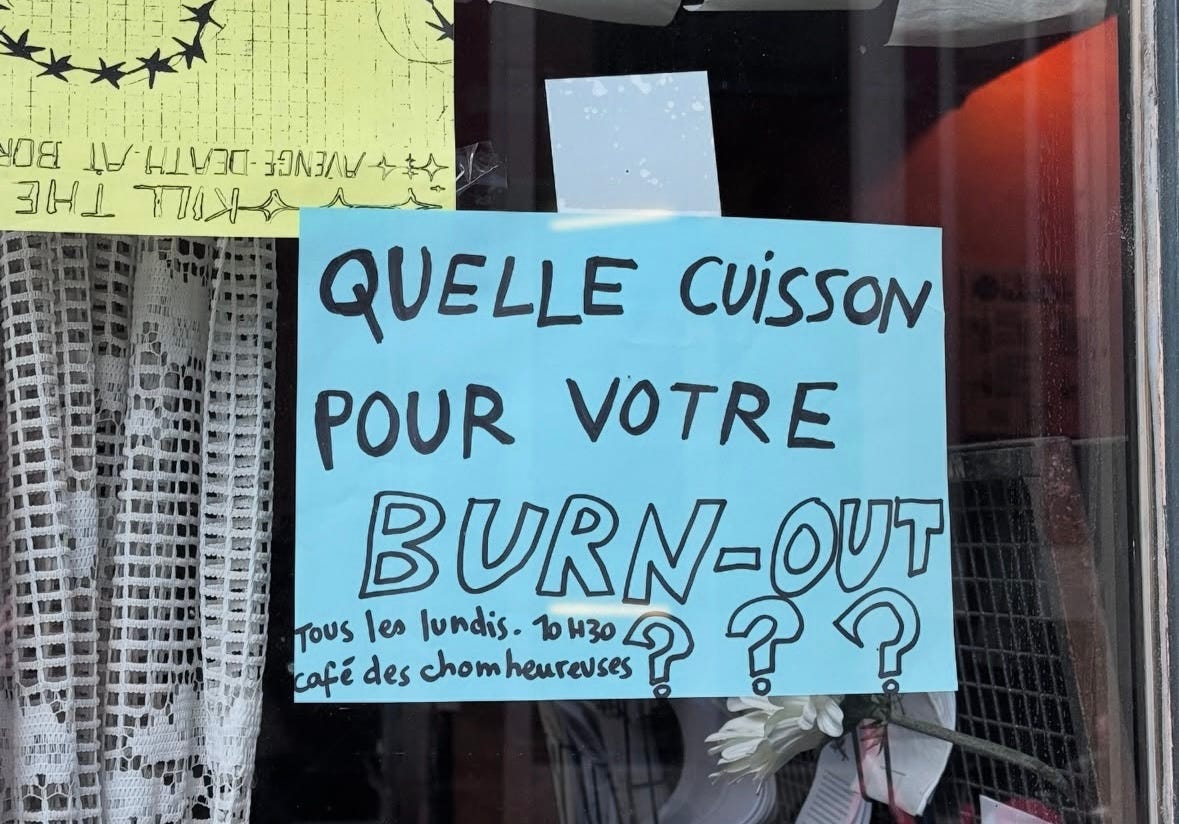 AVENGE DEATH AT BOR
KILL THE
QUELLE CUISSON
POUR VOTRE
BURN-OUT
Tous les lundis. 10H30 ? ? ?
café des chomheureuses